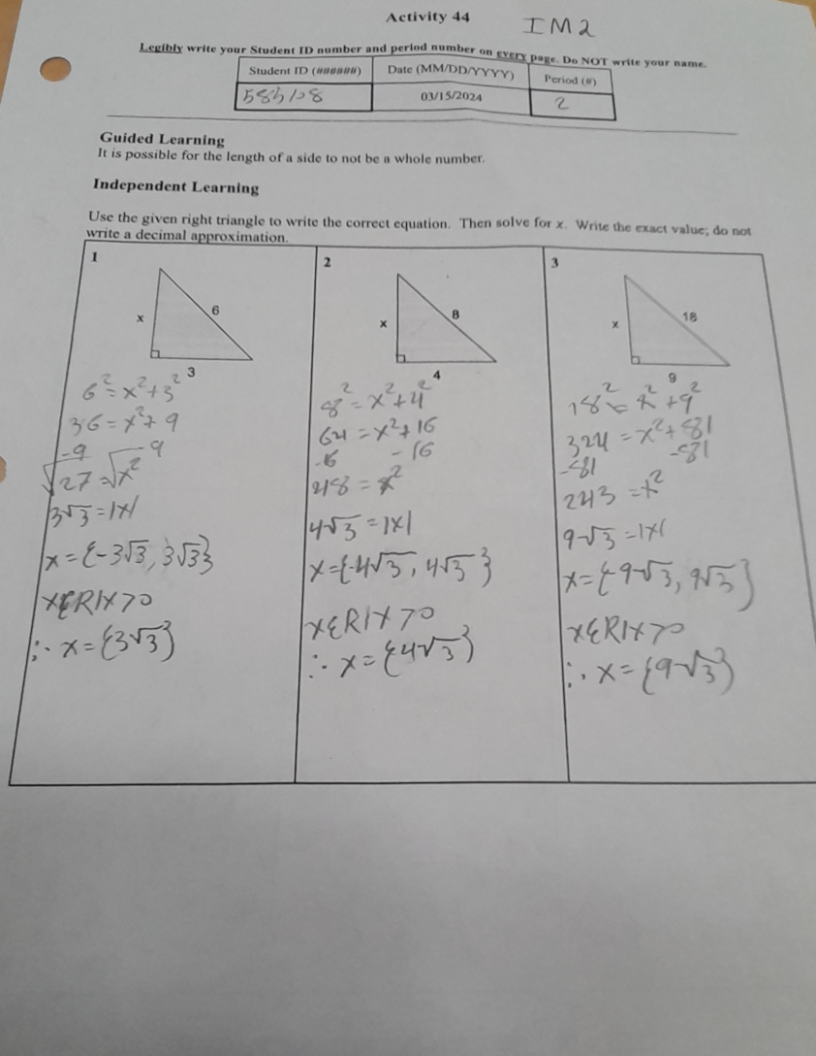 Activity 44
IM2
Legibly write your Student ID number and period number on every page. Do NOT write your name.
Student ID (######) Date (MM/DD/YYYY) Period (#)
03/15/2024 2
Guided Learning
It is possible for the length of a side to not be a whole number.
Independent Learning
Use the given right triangle to write the correct equation. Then solve for x. Write the exact value; do not
write a decimal approximation.
1
x 6
3
6² = x² + 3²
36 = x² + 9
-9 -9
√27 = √x²
3√3 = |x|
x = {-3√3, 3√3}
x∈R|x>0
∴ x = {3√3}
2
x 8
4
8² = x² + 4²
64 = x² + 16
-16
48 = x²
4√3 = |x|
x = {-4√3, 4√3}
x∈R|x>0
∴ x = {4√3}
3
x 18
9
18² = x² + 9²
324 = x² + 81
-81 -81
243 = x²
9√3 = |x|
x = {-9√3, 9√3}
x∈R|x>0
∴ x = {9√3}